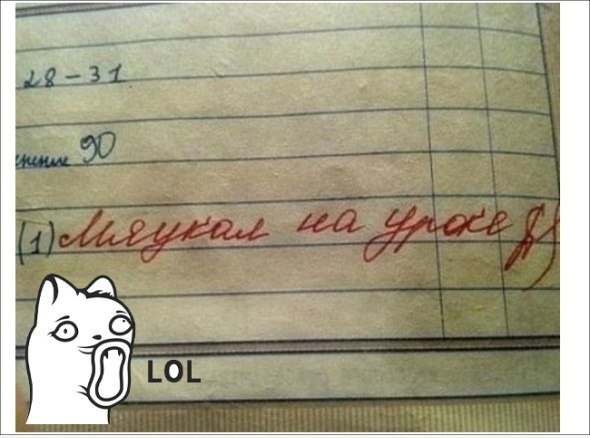 28-31
90
(1) Мяукал на уроке
LOL